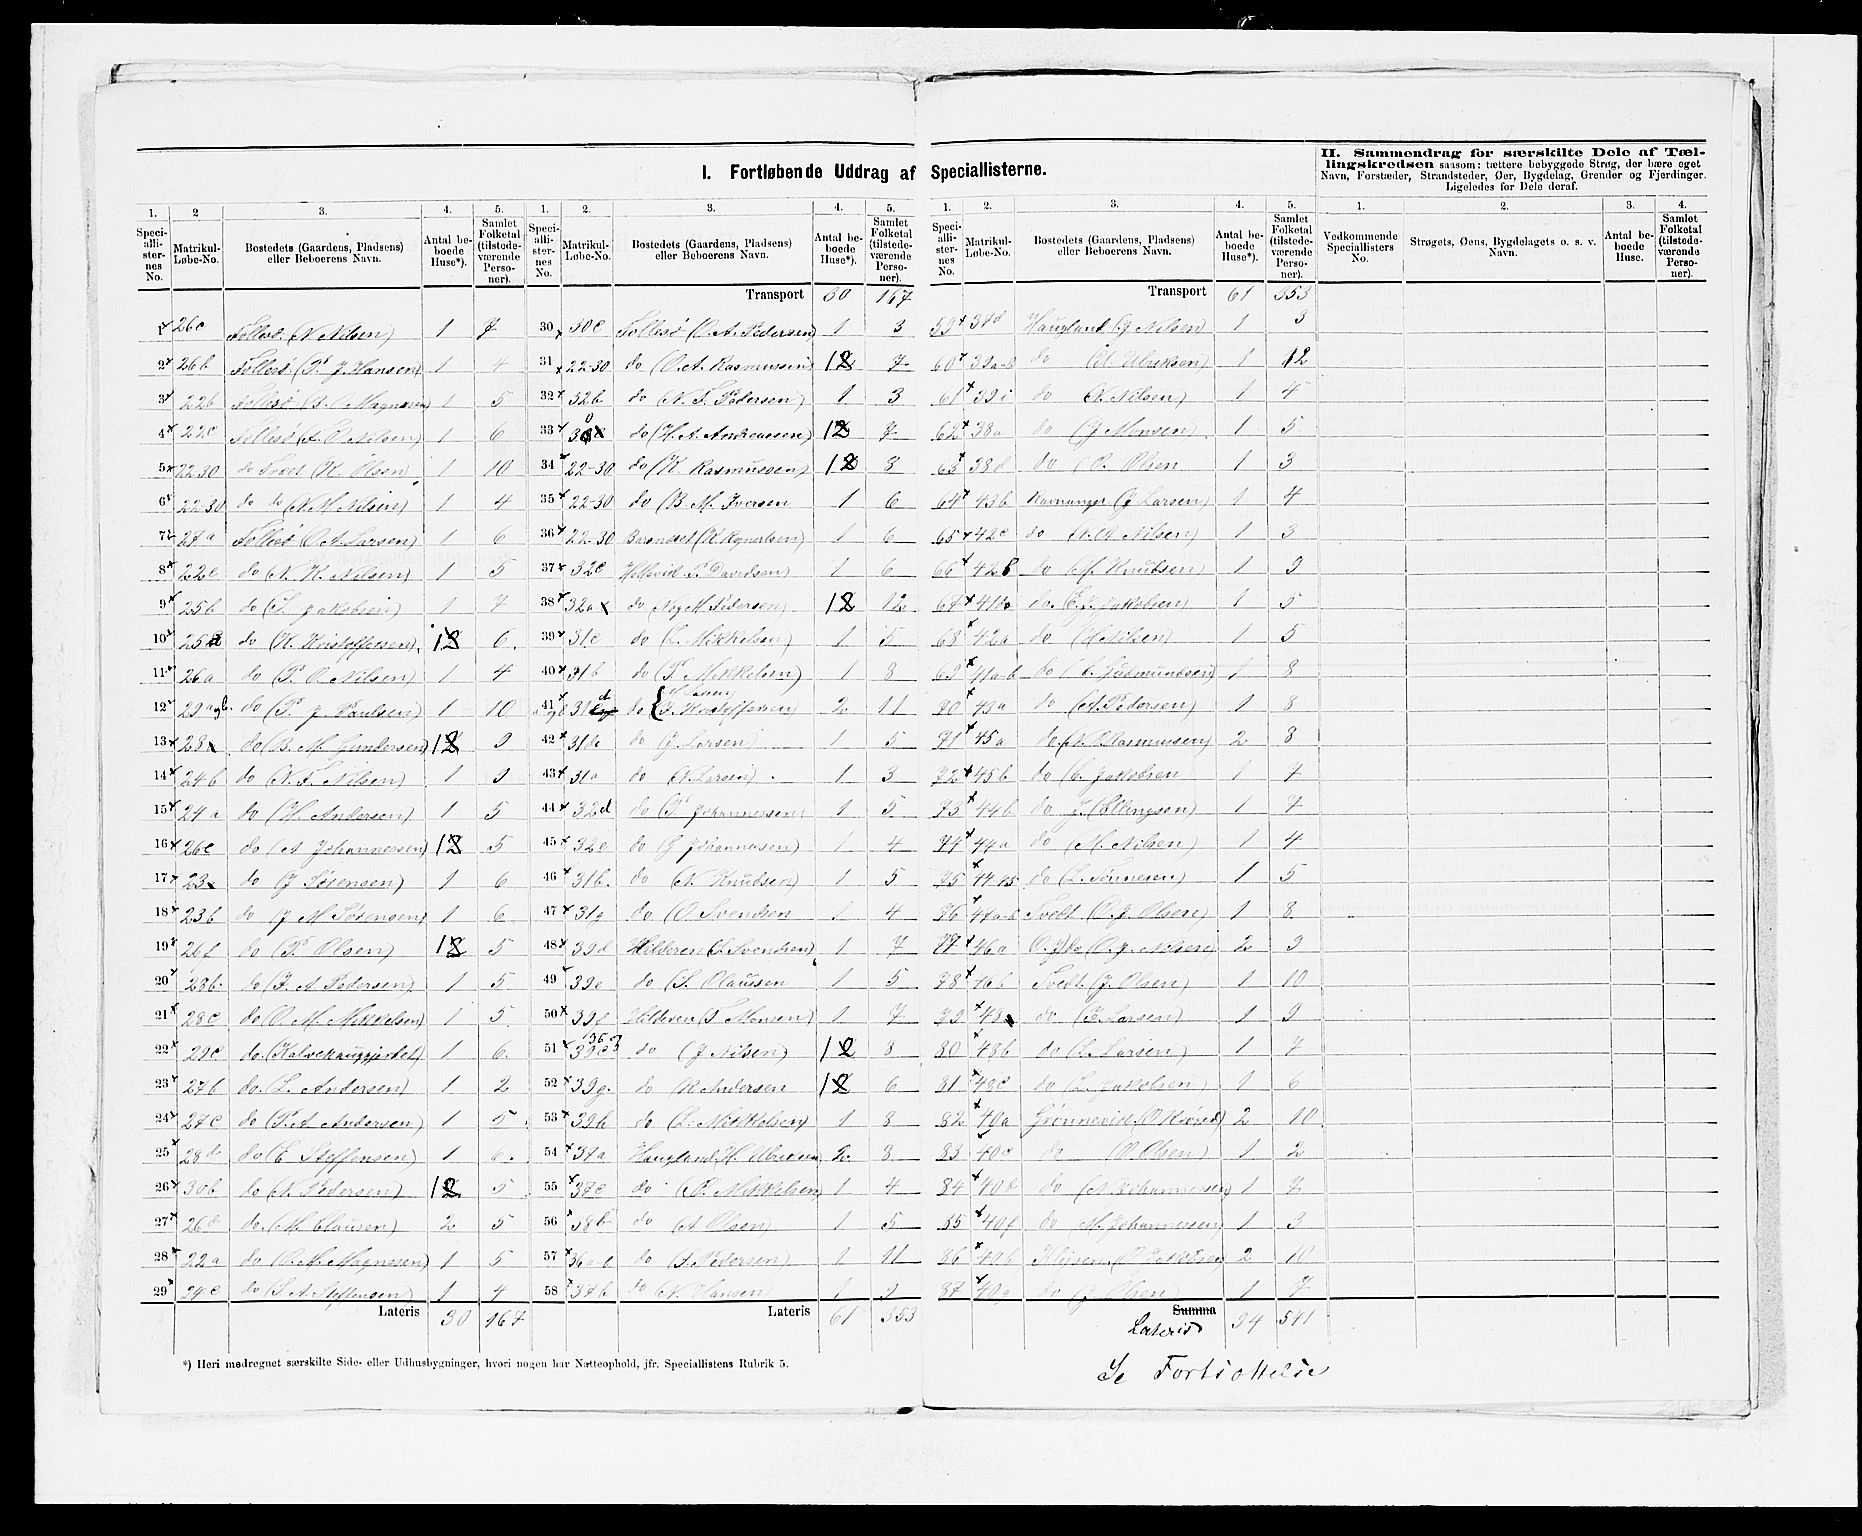 I. Fortløbende Uddrag af Speciallisterne.
II. Sammendrag for særskilte Dele af Tæl-
lingskredsen saasom: tættere bebyggede Strøg, der bære eget
Navn, Forstæder, Strandsteder, Øer, Bygdelag, Grender og Fjerdinger.
Ligeledes for Dele deraf.
1. 2 3. 4. 5. 1. 2. 3. 4. 5. 1. 2. 3. 4. 5. 1. 2. 3. 4.
Speci-alli-ster-nes No. Matrikul-Løbe-No. Bostedets (Gaardens, Pladsens) eller Beboerens Navn. Antal be-boede Huse*). Samlet Folketal (tilstede-værende Perso-ner).
Speci-alli-ster-nes No. Matrikul-Løbe-No. Bostedets (Gaardens, Pladsens) eller Beboerens Navn. Antal be-boede Huse*). Samlet Folketal (tilstede-værende Perso-ner).
Speci-alli-ster-nes No. Matrikul-Løbe-No. Bostedets (Gaardens, Pladsens) eller Beboerens Navn. Antal be-boede Huse*). Samlet Folketal (tilstede-værende Perso-ner).
Vedkommende Speciallisters No. Strøgets, Øens, Bygdelagets o. s. v. Navn. Antal beboede Huse. Samlet Folketal (tilstede-værende Perso-ner).
1 26c Follesö (N. Nilsen) 1 7
2 26b Follesö (P. J. Hansen) 1 4
3 22b Follesö (B. Magnesen) 1 5
4 22c Follesö (L. O. Nilsen) 1 6
5 22-30 do Tvedt (K. Olsen) 1 10
6 22-30 do do (N. M. Nilsen) 1 4
7 27a Follesö (A. Larsen) 1 6
8 22e do (N. K. Nilsen) 1 5
9 25b do (S. Jakobsen) 1 7
10 25a do (K. Kristoffersen) 1 6
11 26a do (P. O. Nilsen) 1 4
12 29a og b. do (P. J. Paulsen) 1 10
13 28 do (B. M. Gundersen) 1 9
14 24b do (N. F. Nilsen) 1 9
15 24a do (H. Andersen) 1 5
16 26e do (A Johannesen) 1 5
17 23 do (J Sörensen) 1 6
18 23b do (J M Sörensen) 1 6
19 26f do (P. Olsen) 1 5
20 28b do (J. A Pedersen) 1 5
21 28c do (O. M. Mikkelsen) 1 5
22 29c do (Kalvehaugjertet) 1 6
23 27b do (L. Andersen) 1 2
24 27c do (P. A Andersen) 1 5
25 28d do (E Steffensen) 1 6
26 30b do (N Pedersen) 1 5
27 26d do (M. Clausen) 2 5
28 22a do (O. M. Magnesen) 1 5
29 24c do (S. A. Steffensen) 1 4
Lateris 30 167
Transport 30 167
30 30c Follesö (O. A. Pedersen) 1 3
31 22-30 do (O. A. Rasmussen) 1 7
32 32b do (N. F. Pedersen) 1 3
33 do (H. A. Andreassen) 1 7
34 22-30 do (K Rasmussen) 1 8
35 22-30 do (B. M. Iversen 1 6
36 22-30 1 6
37 32c P. Davidsen) 1 6
38 32a do Pedersen) 1 12
39 31c do (L. Mikkelsen) 1 5
40 31b do (P. Mikkelsen) 1 8
41 31 do Kristoffersen) 2 11
42 31d do (J Larsen) 1 5
43 31a do (N Larsen) 1 3
44 32d do (P Johannessen) 1 5
45 32e do (J Johannesen) 1 4
46 31b. do (N Knudsen) 1 5
47 31g do (O. Svendsen 1 4
48 39d Hilderen (S. Svendsen) 1 7
49 39e do (S. Olaussen 1 5
50 39f Hilderen (T. Monsen) 1 7
51 39c do (J Nilsen) 1 8
52 39g. do R Andersen 1 6
53 39h do (L. Mikkelsen) 1 8
54 37a Haugland H. Ulriksen 2 8
55 37c do (P. Mikkelsen) 1 4
56 38b do (A Olsen) 1 5
57 36a-b do (S. Pedersen) 1 11
58 37b do (N. Hansen) 1 9
Lateris 61 353
Transport 61 353
59 37d Haugland (J Nilsen) 1 3
60 39a-b do (M. Ulriksen) 1 12
61 39i do (N. Nilsen) 1 4
62 38a do (J Monsen) 1 5
63 38d do (O. Olsen 1 3
64 43b Ravnanger (J Larsen) 1 4
65 42c do (N. A. Nilsen) 1 3
66 42b do (M. Knudsen) 1 9
67 41 do (E. J. Jakobsen) 1 5
68 42a do (H Nilsen) 1 5
69 41a-b do Gudmundsen) 1 8
70 49a do (A. Pedersen) 1 8
71 45a do (N. Rasmussen) 2 8
72 45b do (C. Jakobsen 1 7
73 44b do J. (Ellingsen) 1 7
74 44a do (M. Nilsen) 1 4
75 44-45 do (L. Tönnesen) 1 5
76 47a-b Tvedt (O. J. Olsen) 1 8
77 46a do (O. J. Nilsen) 2 9
78 46b Tvedt (J. Olsen) 1 10
79 48 do (E. Larsen) 1 9
80 48b do (L. Larsen) 1 7
81 49c do (L. Jakobsen) 1 6
82 40a Grönnevik (O 2 10
83 40c do (O Olsen) 1 2
84 40d do (N Johannesen) 1 7
85 40f do M. Johannesen) 1 3
86 49b (O Jakobsen) 2 10
87 49g do (J Olsen) 1 7
Summa
Lateris 94 541
Se Fortsættelse
*) Heri medregnet særskilte Side- eller Udhusbygninger, hvori nogen har Natteophold, jfr. Speciallistens Rubrik 5.